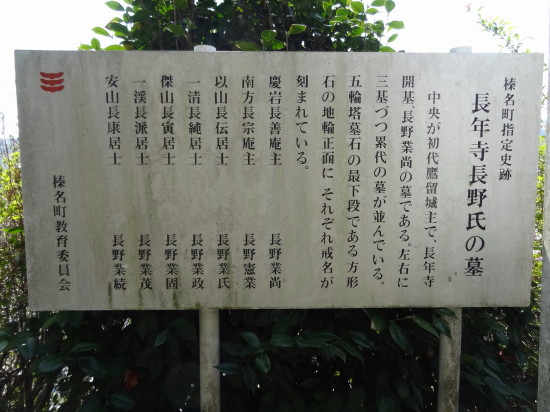 榛名町指定史跡
長年寺長野氏の墓
中央が初代鷹留城主で、長年寺
開基、長野業尚の墓である。左右に
三基づつ累代の墓が並んでいる。
五輪塔墓石の最下段である方形
石の地輪正面に それぞれ戒名が
刻まれている。
慶岩長善庵主 長野業尚
南方長宗庵主 長野憲業
以山長伝居士 長野業氏
一清長純居士 長野業政
傑山長寅居士 長野業固
一渓長派居士 長野業茂
安山長康居士 長野業続
榛名町教育委員会